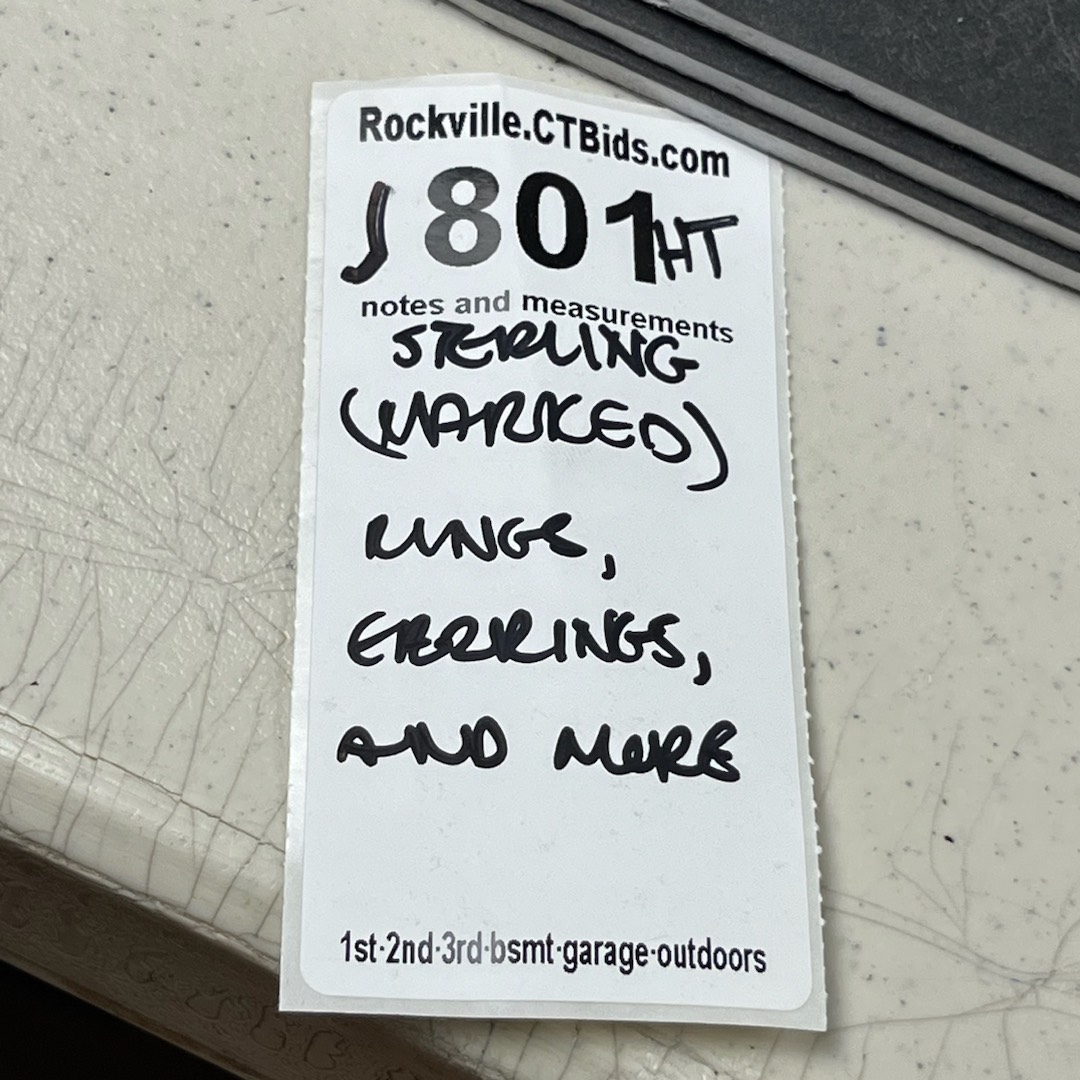 Rockville.CTBids.com
J 801 HT
notes and measurements
STERLING
(MARKED)
RINGS,
EARRINGS,
AND MORE
1st·2nd·3rd·bsmt·garage·outdoors